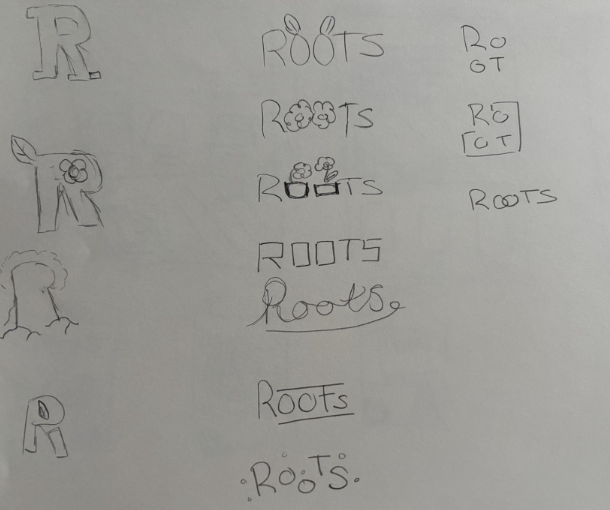 R.
R
R
R
ROOTS
ROOTS
ROOTS
ROOTS
Roots
ROOTS
ROOTS
RO
OT
RO
OT
ROOTS